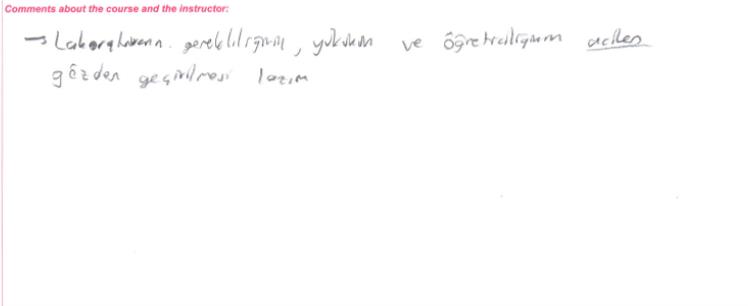 Comments about the course and the instructor:
→ Laboratuvarın gerekliliğinin, yükünün ve öğreticiliğinin acilen
gözden geçirilmesi lazım